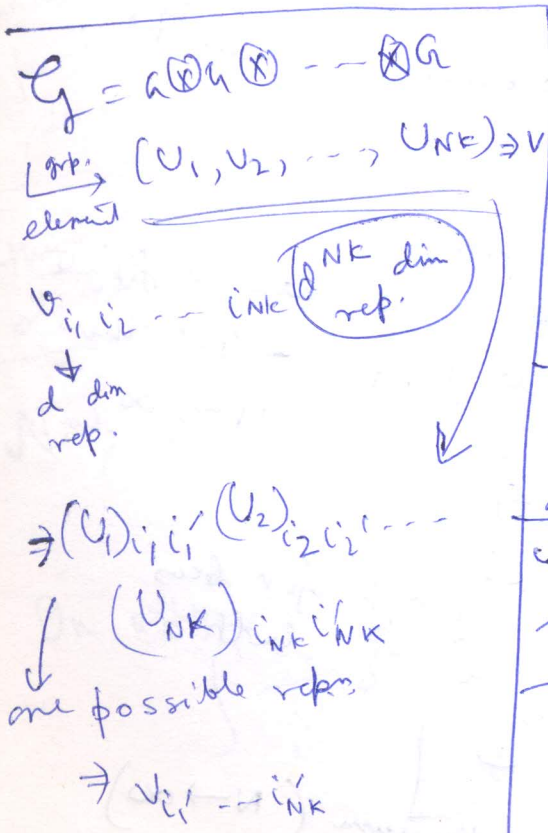 𝒢 = G ⊗ G ⊗ --- ⊗ G
grp. element → (U₁, U₂, ---, U_NK) ⇒ V
v_{i₁ i₂ --- i_NK} d^{NK} dim rep.
↓
d dim
rep.
⇒ (U₁)_{i₁ i₁'} (U₂)_{i₂ i₂'} ---
(U_NK)_{i_NK i'_NK}
one possible repn.
⇒ v_{i₁' --- i'_NK}